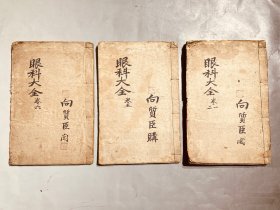 眼科大全 卷六
向質臣閱
眼科大全 卷三
向質臣購
眼科大全 卷一二
向質臣閱